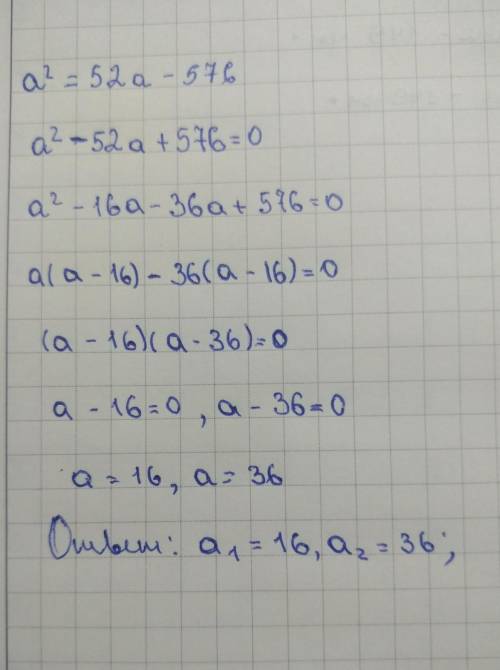 a² = 52a - 576
a² - 52a + 576 = 0
a² - 16a - 36a + 576 = 0
a(a - 16) - 36(a - 16) = 0
(a - 16)(a - 36) = 0
a - 16 = 0, a - 36 = 0
a = 16, a = 36
Ответ: a₁ = 16, a₂ = 36;